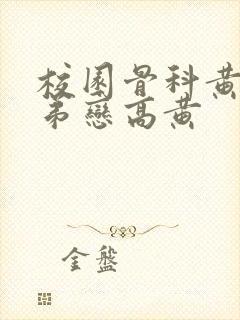 校園骨科黃
弟戀高黃
金盤